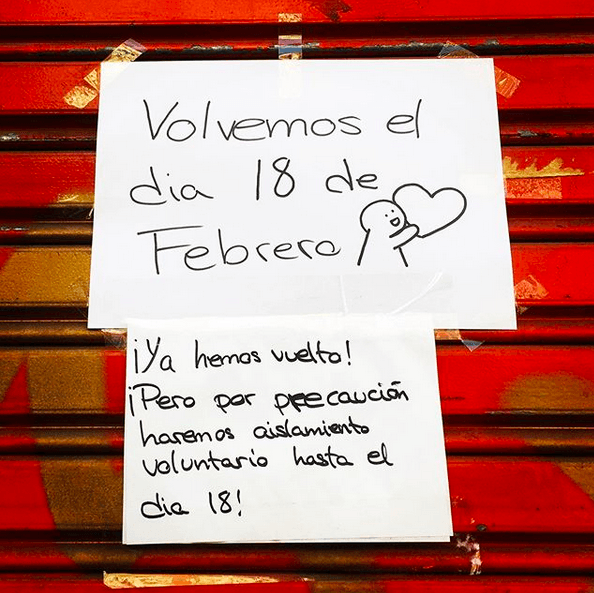 Volvemos el
dia 18 de
Febrero
¡Ya hemos vuelto!
¡Pero por precaución
haremos aislamiento
voluntario hasta el
dia 18!